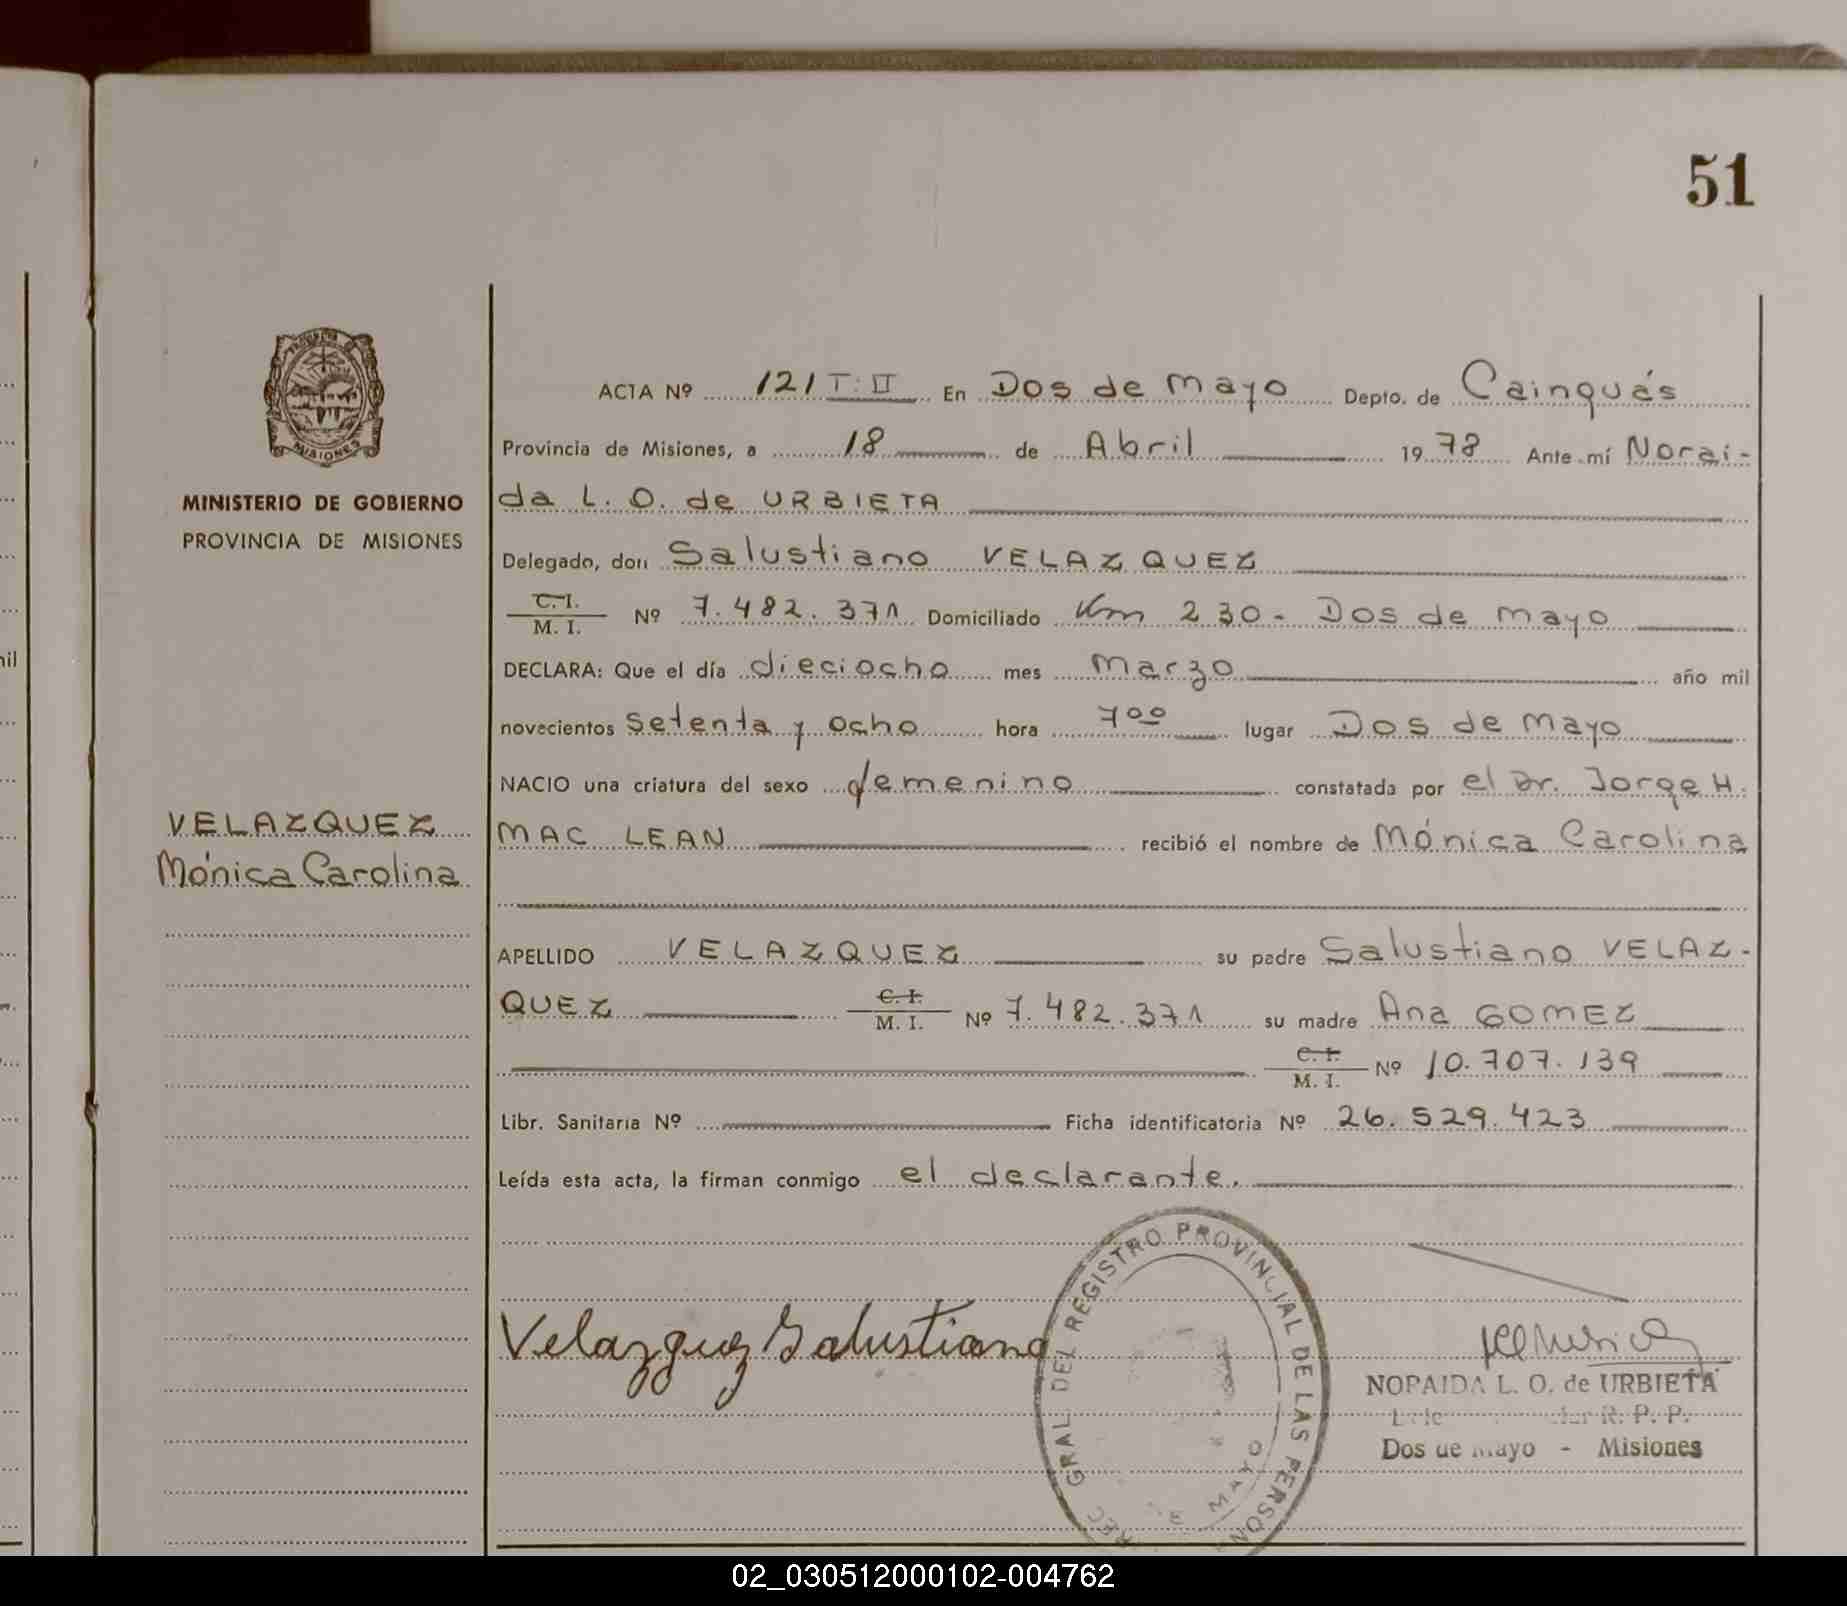 51
PROVINCIA DE
MISIONES
MINISTERIO DE GOBIERNO
PROVINCIA DE MISIONES
VELAZQUEZ
Mónica Carolina
ACTA Nº 121 T: II En Dos de Mayo Depto. de Cainguás
Provincia de Misiones, a 18 de Abril 1978 Ante mí Norai-
da L. O. de URBIETA
Delegado, don Salustiano VELAZQUEZ
C. I.
M. I. Nº 7.482.371 Domiciliado Km 230 - Dos de Mayo
DECLARA: Que el día dieciocho mes Marzo año mil
novecientos setenta y ocho hora 7oo lugar Dos de Mayo
NACIO una criatura del sexo femenino constatada por el Dr. Jorge H.
MAC LEAN recibió el nombre de Mónica Carolina
APELLIDO VELAZQUEZ su padre Salustiano VELAZ-
QUEZ C. I. M. I. Nº 7.482.371 su madre Ana GOMEZ
C. I. M. I. Nº 10.707.139
Libr. Sanitaria Nº Ficha identificatoria Nº 26.529.423
Leída esta acta, la firman conmigo el declarante.
Velazquez Salustiano
GRAL DEL REGISTRO PROVINCIAL DE LAS PERSON
MAYO
NORAIDA L. O. de URBIETA
R. P. P.
Dos de Mayo - Misiones
02_030512000102-004762